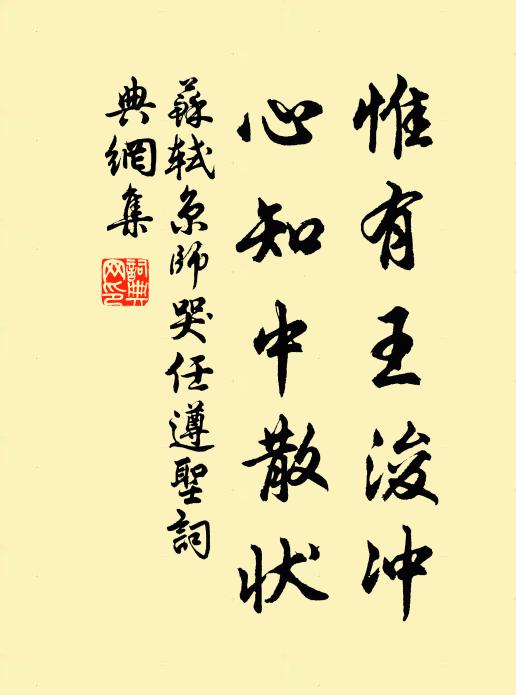 惟有王浚冲
心知中散状
蘇軾京師哭任遵聖詞
典網集
詞典網印